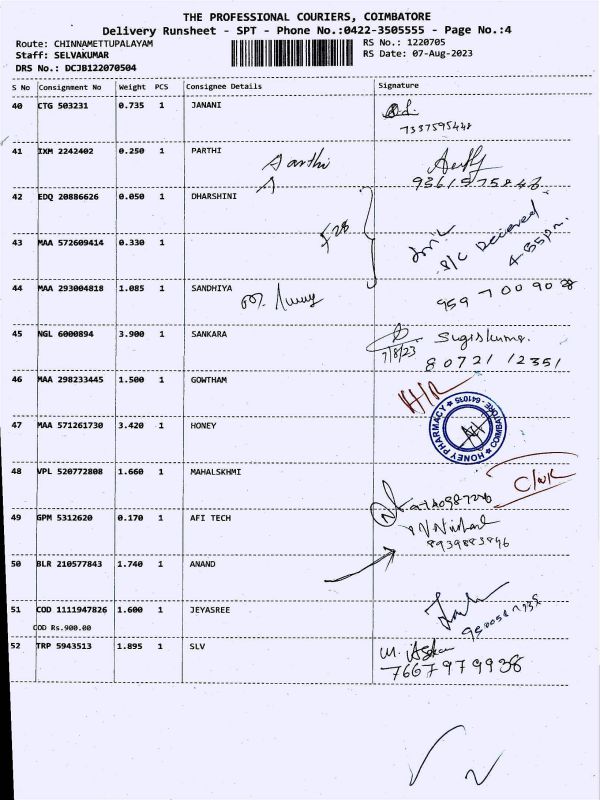 THE PROFESSIONAL COURIERS, COIMBATORE
Delivery Runsheet - SPT - Phone No.:0422-3505555 - Page No.:4
Route: CHINNAMETTUPALAYAM RS No.: 1220705
Staff: SELVAKUMAR RS Date: 07-Aug-2023
DRS No.: DCJB122070504
S No Consignment No Weight PCS Consignee Details Signature
40 CTG 503231 0.735 1 JANANI
7337595448
41 IXM 2242402 0.250 1 PARTHI
Aarthi
42 EDQ 20886626 0.050 1 DHARSHINI
S/C Received
43 MAA 572609414 0.330 1
4.35pm.
44 MAA 293004818 1.085 1 SANDHIYA
959 700 9028
45 NGL 6000894 3.900 1 SANKARA
7/8/23
80721 12351
46 MAA 298233445 1.500 1 GOWTHAM
HONEY PHARMACY COIMBATORE - 641015
47 MAA 571261730 3.420 1 HONEY
48 VPL 520772808 1.660 1 MAHALSKHMI
49 GPM 5312620 0.170 1 AFI TECH
8939883846
50 BLR 210577843 1.740 1 ANAND
51 COD 1111947826 1.600 1 JEYASREE
COD Rs.900.00
52 TRP 5943513 1.895 1 SLV
7667979938